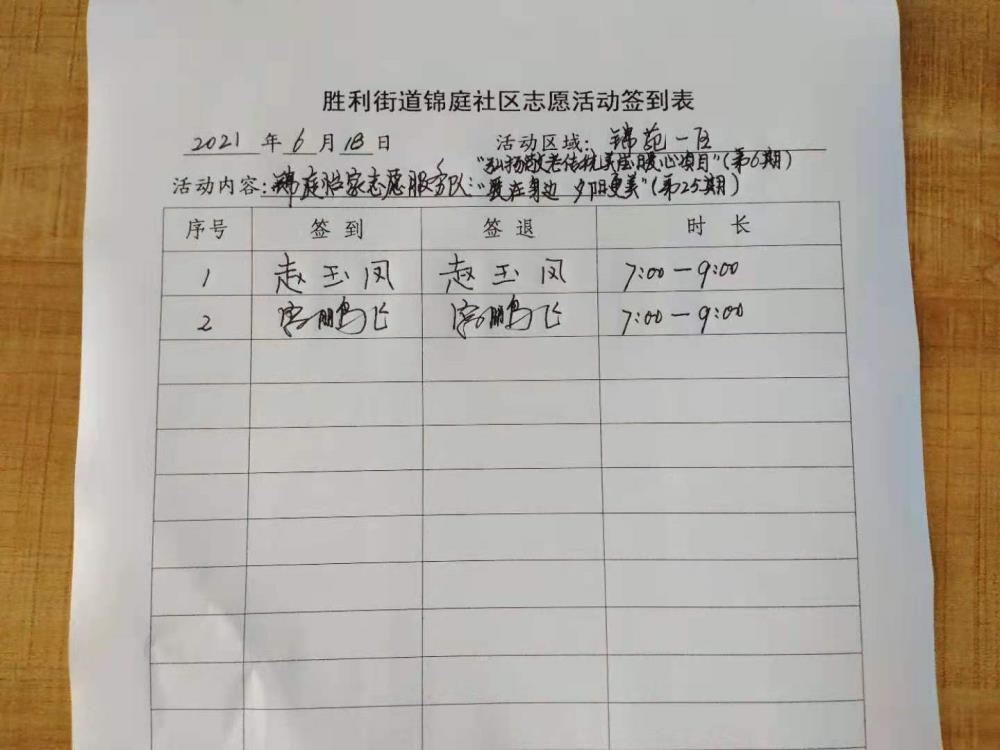 胜利街道锦庭社区志愿活动签到表
2021 年 6 月 18 日 活动区域: 锦苑一区
"弘扬敬老传统美德暖心项目"(第6期)
活动内容: 锦庭怡家志愿服务队: "爱在身边 夕阳更美"(第25期)
序号 签到 签退 时长
1 赵玉凤 赵玉凤 7:00-9:00
2 鹏飞 鹏飞 7:00-9:00